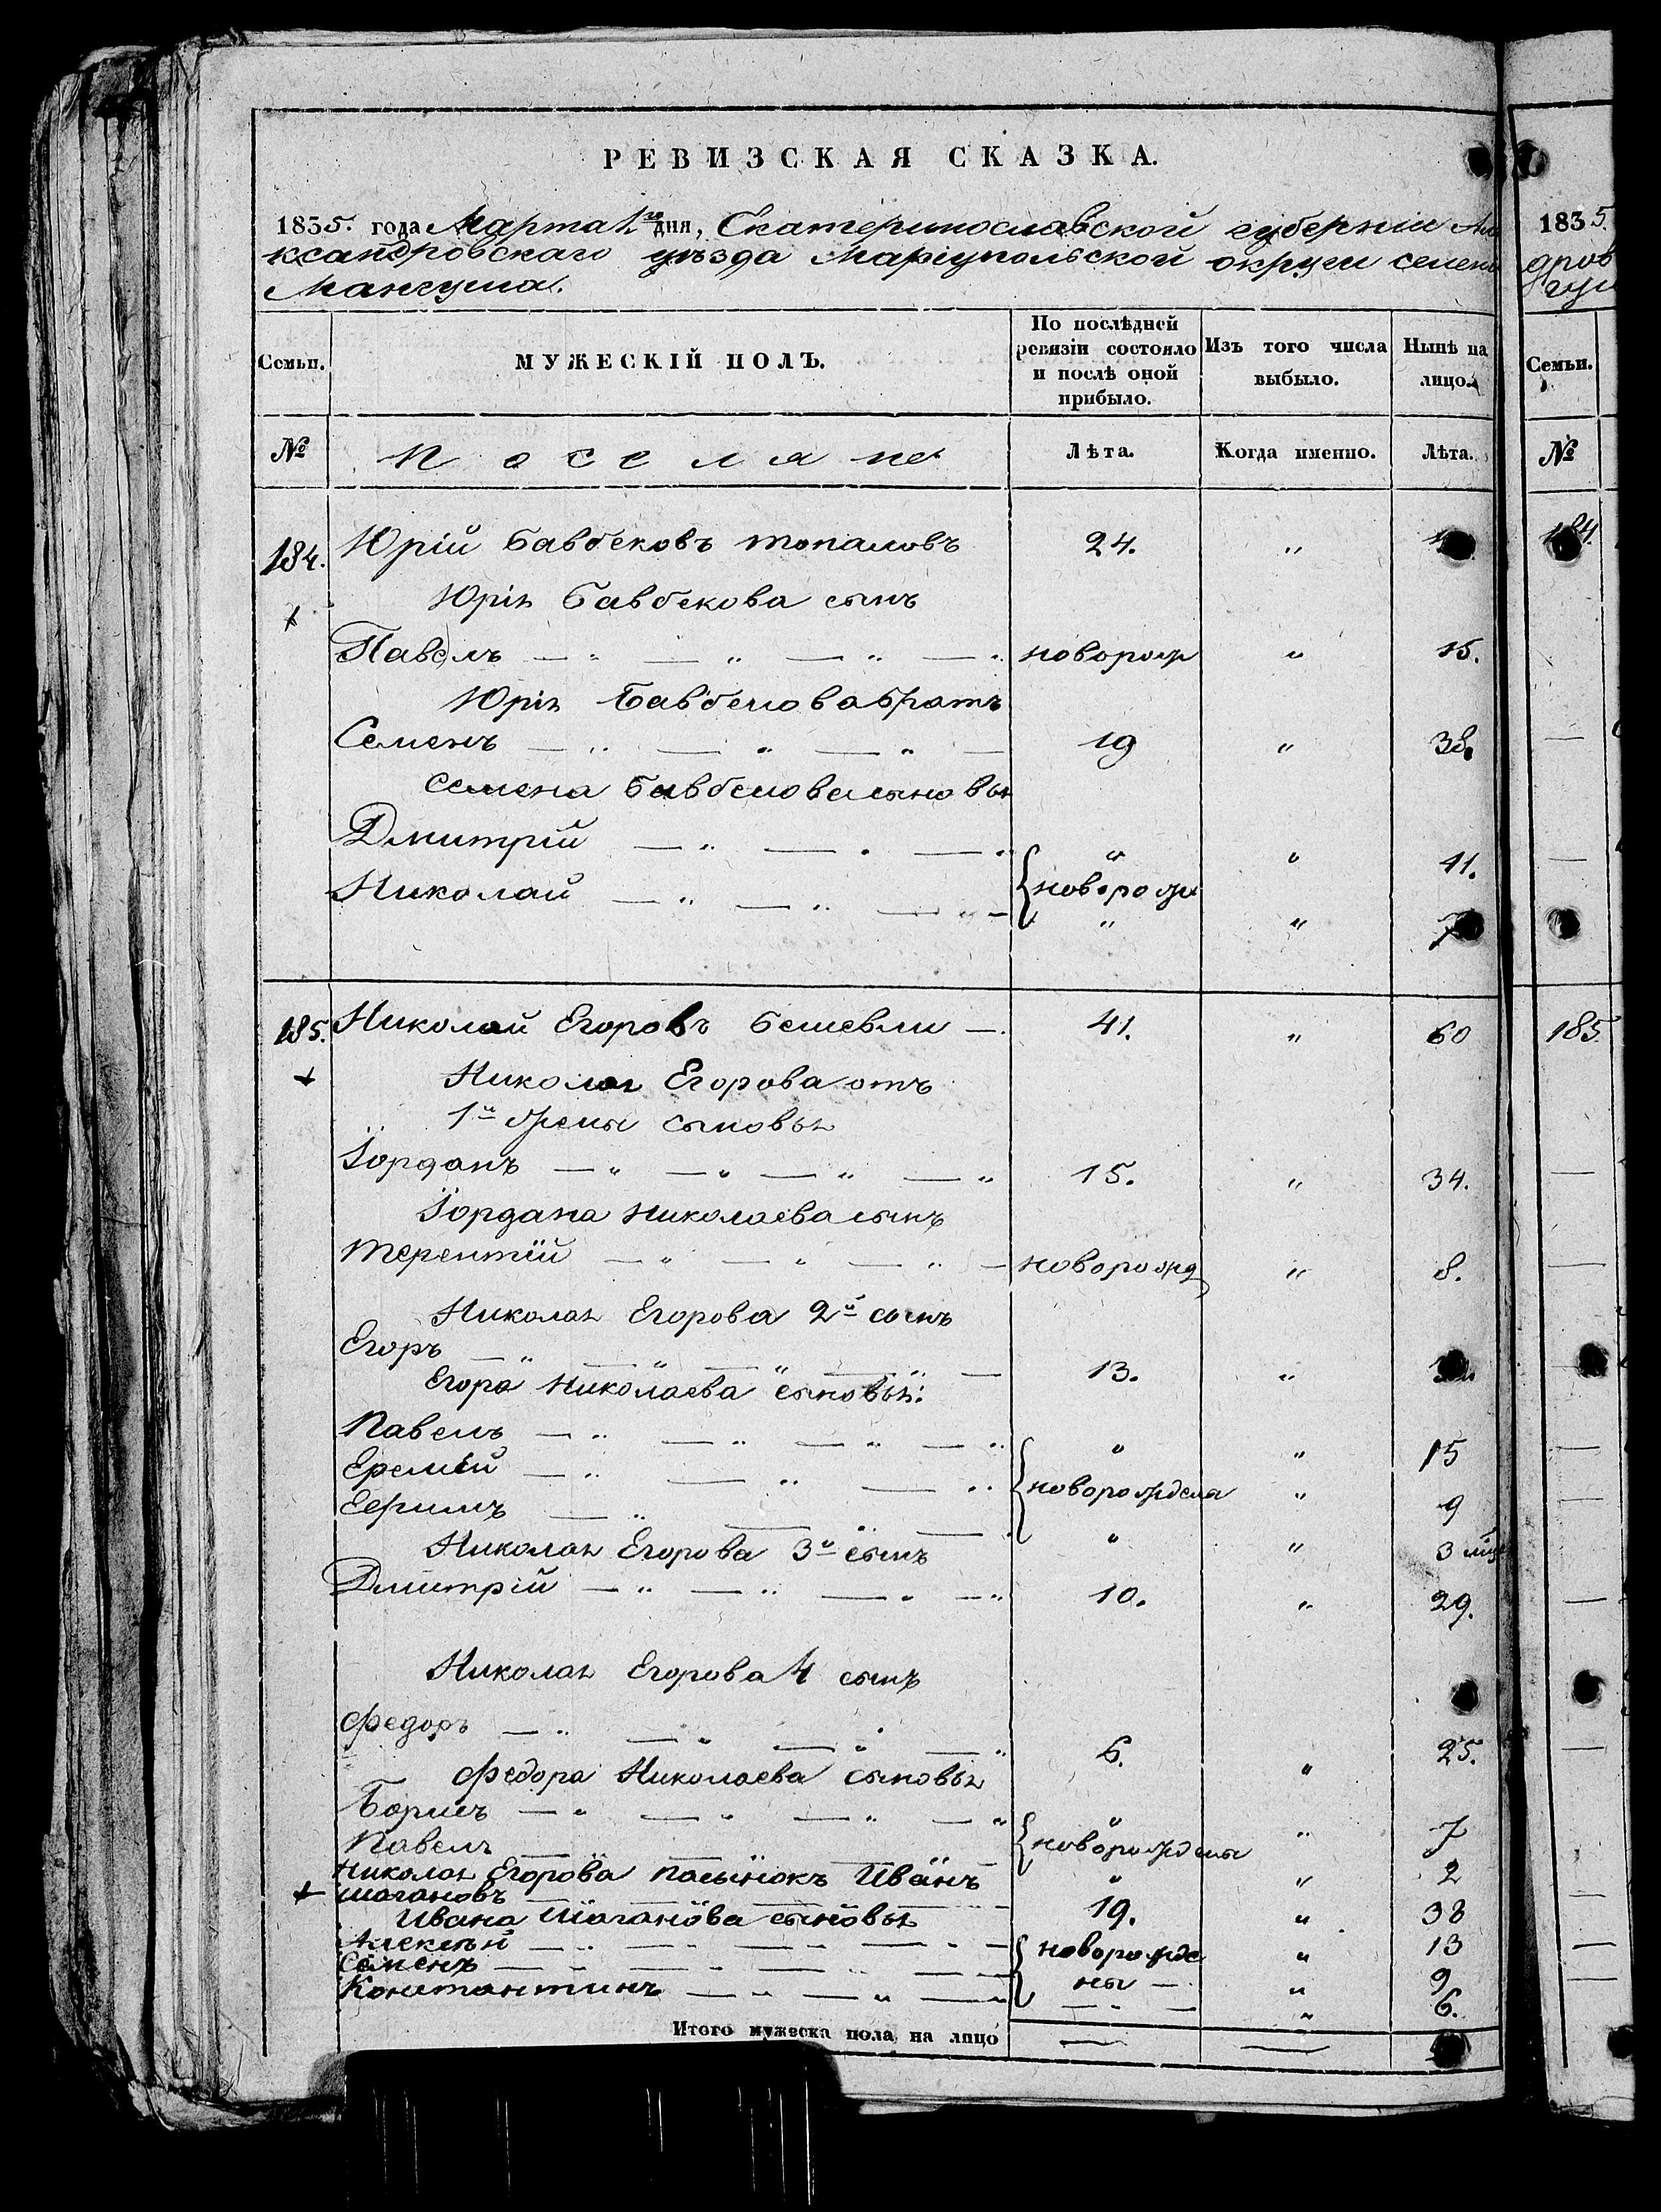 РЕВИЗСКАЯ СКАЗКА.
1835. года Марта 1го дня, Екатеринославской губерніи Але
ксандровскаго уѣзда Маріупольской округи селені
Мангуша.
Семьи.
МУЖЕСКІЙ ПОЛЪ.
По послѣдней ревизіи состояло и послѣ оной прибыло.
Изъ того числа выбыло.
Нынѣ на лицо.
№ поселяне Лѣта. Когда именно. Лѣта.
184. Юрій Бавбековъ Топаловъ 24. "
Юрія Бавбекова сынъ
Павелъ — " — " — " — " новорож " 15.
Юрія Бавбекова братъ
Семенъ — " — " — " — 19 " 38.
Семена Бавбекова сыновья
Дмитрій — " — " — " " " 11.
Николай — " — " — " — новорож " " 7
185. Николай Егоровъ Бешевли — 41. " 60
Николая Егорова отъ
1й жены сыновья
Іорданъ — " — " — " — " 15. " 34.
Іордана Николаева сынъ
Терентій — " — " — " — новорожд " 8.
Николая Егорова 2й сынъ
Егоръ — " — " — " — " — 13. "
Егора Николаева сыновья:
Павелъ — " — " — " — " " " 15
Еремѣй — " — " — " новорождены " 9
Ефимъ — " — " — " " 3 мѣс
Николая Егорова 3й сынъ
Дмитрій — " — " — " — " 10. " 29.
Николая Егорова 4 сынъ
Федоръ — " — " — " — " 6. " 25.
Федора Николаева сыновья
Борисъ — " — " — " — " " " 7
Павелъ — новорождены " " 2
Николая Егорова пасынокъ Иванъ
Шагановъ 19. " 38
Ивана Шаганова сыновья
Алексѣй — " — " — " — " — новорожде " 13
Семенъ — " — " — " — ны — " 9
Константинъ — " — " — " — " — " 6.
Итого мужеска пола на лицо
1835.
дров
гуш
Семьи.
№
184.
185.